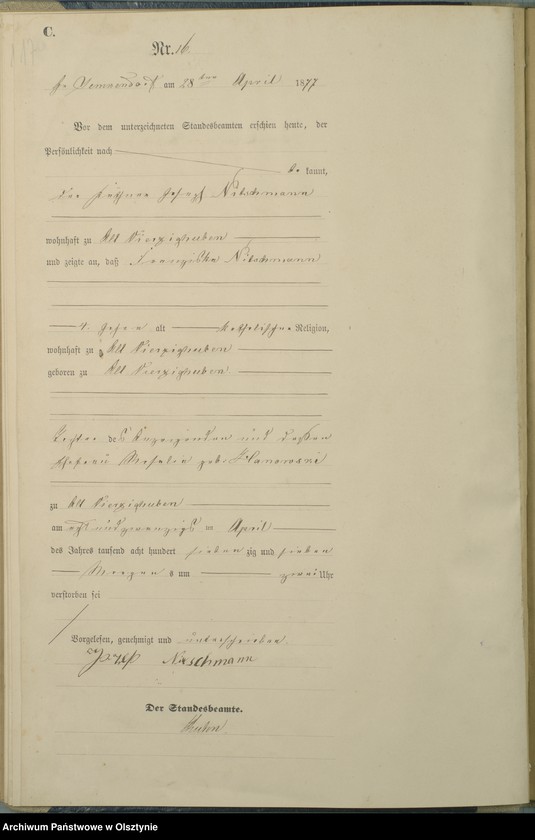 C.
Nr. 16
am 28 ten April 1877
Vor dem unterzeichneten Standesbeamten erschien heute, der
Persönlichkeit nach
be kannt,
der Joseph Nitschmann
wohnhaft zu Alt Vierzighuben
und zeigte an, daß Franziska Nitschmann
4 Jahre alt katholischer Religion,
wohnhaft zu Alt Vierzighuben
geboren zu Alt Vierzighuben
Tochter des Anzeigenden und dessen
Ehefrau geb.
zu Alt Vierzighuben
am acht und zwanzigsten April
des Jahres tausend acht hundert sieben zig und sieben
Morgens um zwei Uhr
verstorben sei
Vorgelesen, genehmigt und unterschrieben
Jozef Nitschmann
Der Standesbeamte.
Archiwum Państwowe w Olsztynie